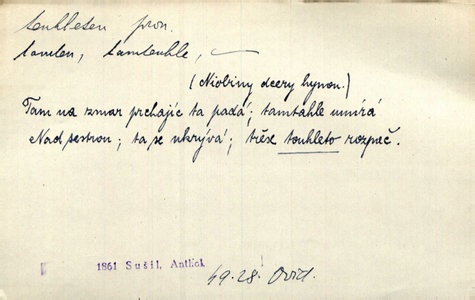 touhleten pron.
tamten, tamtenhle,
(Niobiny dcery hynou.)
Tam na zmar prchajíc ta padá; tamtahle umírá
Nad sestrou; ta se ukrývá; třěs touhleto rozpač.
1861 Sušil, Antick
49.28. Ovid.